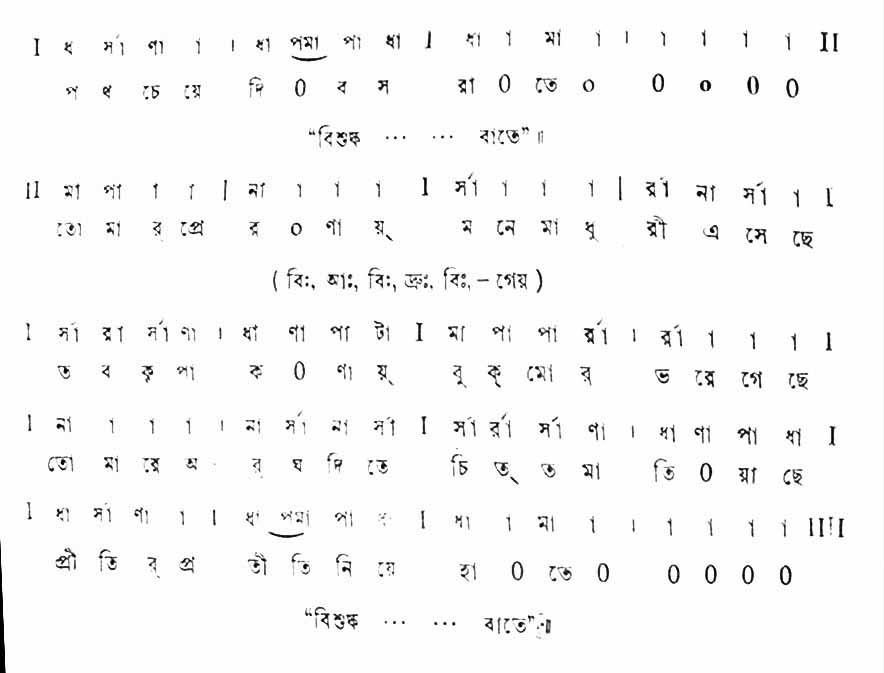 I ধ র্সা ণা া । ধা পমা পা ধা I ধা া মা া । া া া া II
প থ চে য়ে দি 0 ব স রা 0 তে ০ 0 ০ 0 0
“বিশুষ্ক ··· ··· বাতে”॥
II মা পা া া | না া া া I র্সা া া া | র্রা না র্সা া I
তো মা র প্রে র ০ ণা য়্ ম নে মা ধু রী এ সে ছে
( বিঃ, আঃ, বিঃ, দ্রুঃ, বিঃ, – গেয় )
I র্সা রা র্সা ণা । ধা ণা পা টা I মা পা পা র্রা । র্রা া া া I
ত ব কৃ পা ক 0 ণা য়্ বু ক্ মো র্ ভ রে গে ছে
I না া া া । না র্সা না র্সা I র্সা র্রা র্সা ণা । ধা ণা পা ধা I
তো মা রে অ র্ ঘ দি তে চি ত্ ত মা তি 0 য়া ছে
I ধা র্সা ণা া । ধা পমা পা I ধা া মা া । া া া া II II
প্রী তি র্ প্র তী তি নি য়ে হা 0 তে 0 0 0 0 0
“বিশুষ্ক ··· ··· বাতে”॥